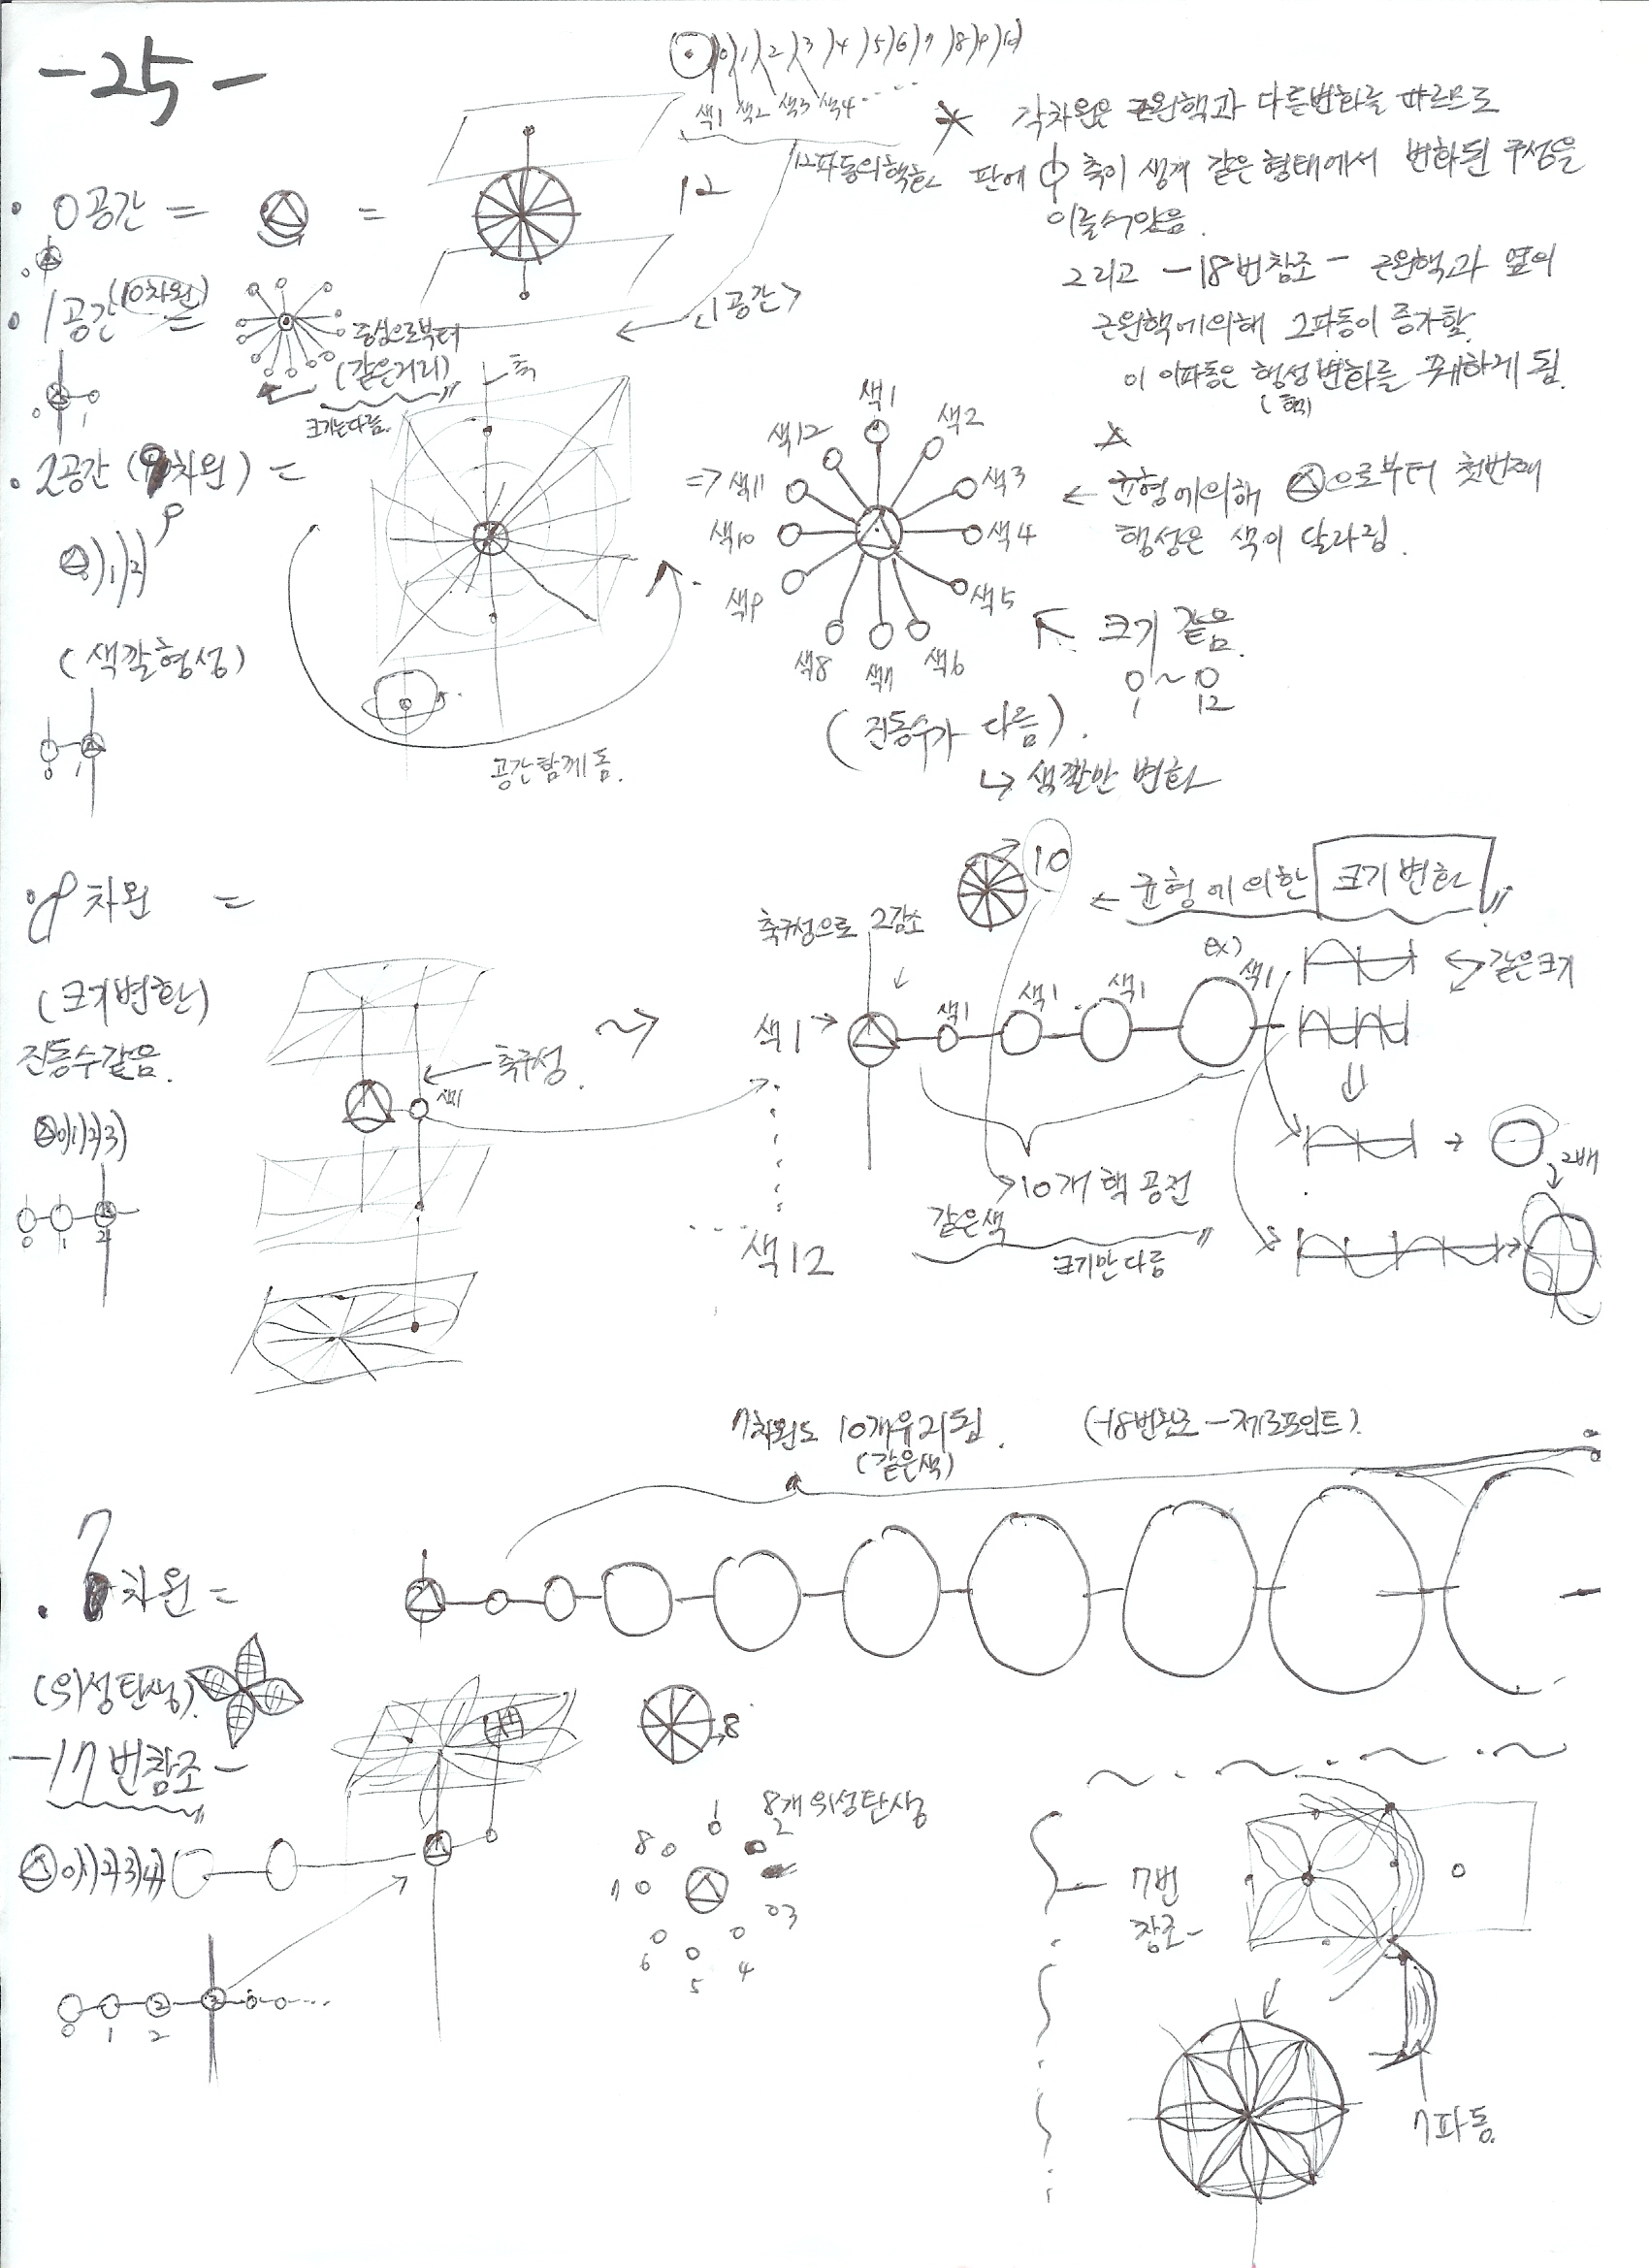 -25-
0)1)2)3)4)5)6)7)8)9)10)
색1 색2 색3 색4 ....
각차원은 근원핵과 다른변화를 따르므로
12파동의핵은 판에 축이 생겨 같은 형태에서 변화된 구성을
이룰수있음.
그리고 -18번참조- 근원핵과 옆의
근원핵에의해 2파동이 증가함.
이 2파동은 행성변화를 꾀하게 됨.
(핵)
· 0공간 = = 12
<1공간>
· 1공간(10차원) =
중심으로부터
(같은거리)
크기는다름.
0 1
축
· 2공간 (9차원) =
9
0)1)2)
(색깔형성)
0 1
공간함께돔.
=>
색1
색2
색3
색4
색5
색6
색7
색8
색9
색10
색11
색12
← 균형에의해 으로부터 첫번째
행성은 색이 달라짐.
크기 같음.
1 ~ 12
(진동수가 다름).
↳ 색깔만 변화
8차원 =
(크기변환)
진동수같음.
0)1)2)3)
0 1 2
축구성.
색1
10
← 균형에의한 크기변화
축구성으로 2감소
ex)
색1 → 색1 색1 색1 색1
같은크기
10개 핵 공전
같은색
크기만다름
색12
2배
7차원도 10개유리됨.
(같은색)
(-18번참조-제로포인트).
· 7차원 =
(위성탄생)
-17번참조-
0)1)2)3)4)
0 1 2
8
8개위성탄생
1
2
3
4
5
6
7
8
7번
참조-
7파동.